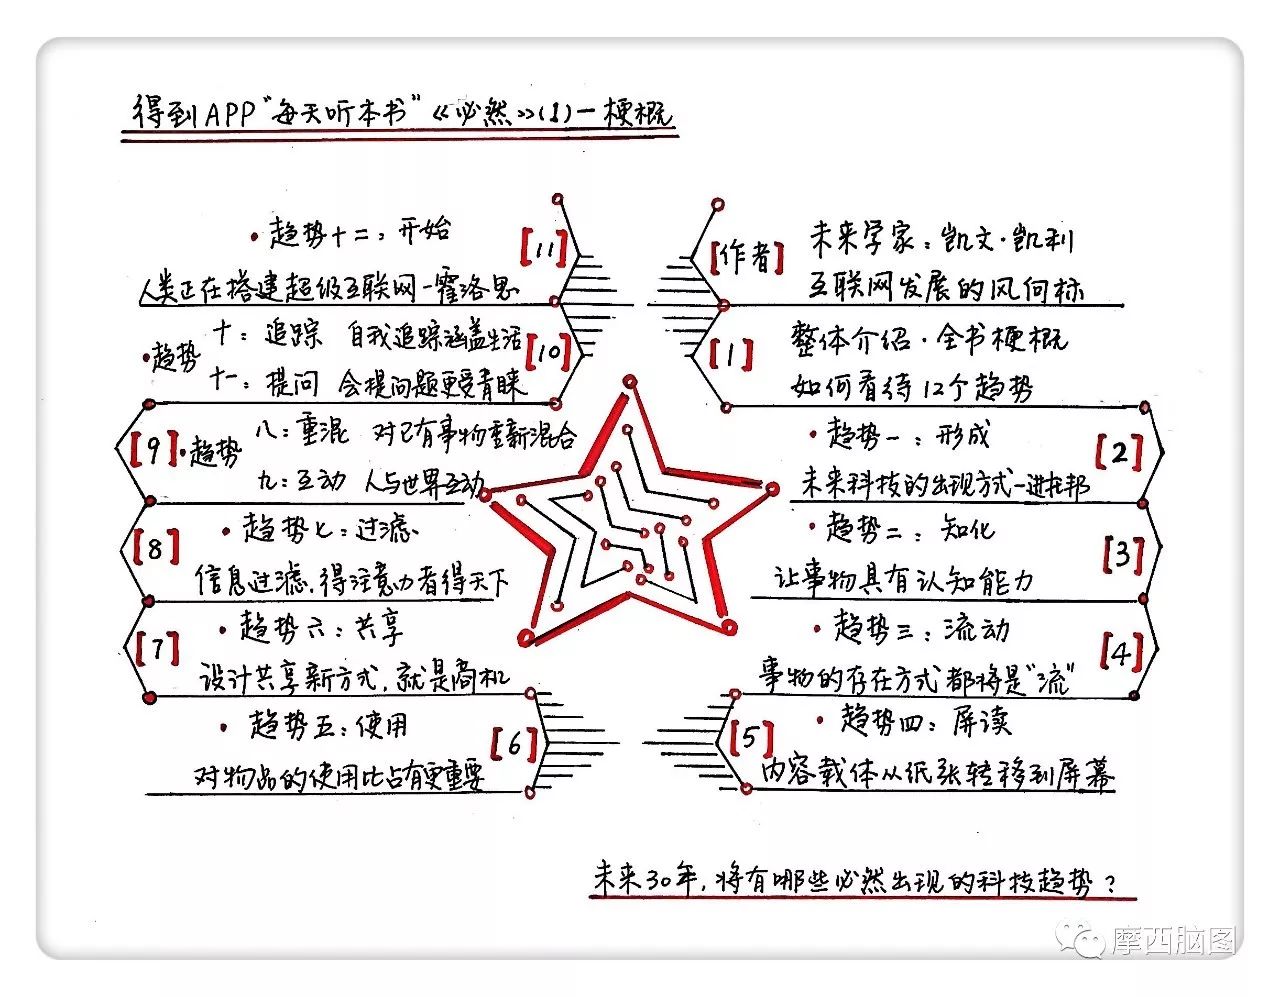 得到APP“每天听本书”《必然》(1)-梗概
[作者]
未来学家：凯文·凯利
互联网发展的风向标
[1]
整体介绍·全书梗概
如何看待12个趋势
[2]
·趋势一：形成
未来科技的出现方式-进托邦
[3]
·趋势二：知化
让事物具有认知能力
[4]
·趋势三：流动
事物的存在方式都将是“流”
[5]
·趋势四：屏读
内容载体从纸张转移到屏幕
[6]
·趋势五：使用
对物品的使用比占有更重要
[7]
·趋势六：共享
设计共享新方式，就是商机
[8]
·趋势七：过滤
信息过滤，得注意力者得天下
[9]
·趋势
八：重混 对已有事物重新混合
九：互动 人与世界互动
[10]
·趋势
十：追踪 自我追踪涵盖生活
十一：提问 会提问题更受青睐
[11]
·趋势十二：开始
人类正在搭建超级互联网-霍洛思
未来30年，将有哪些必然出现的科技趋势？
摩西脑图